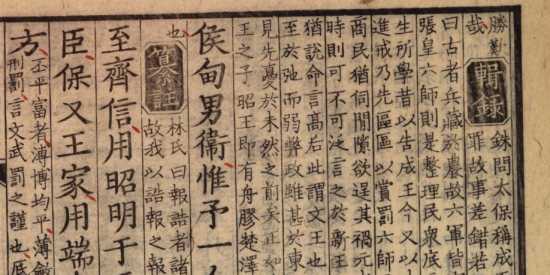 勝歎輯錄銖問太保稱成
哉罪故事差錯若
曰古者兵藏於農故六軍皆
張皇六師則是整理民衆底
生所學昔以告成王今又以
進戒乃先區區以賞罰六師
商民猶伺間隙欲逞其禍尤
時則可不可泛言之於新王
猶說命言高后此謂文王也
至於弛而弱弊政雖甚於東
見先憂於未然之前矣正如
王之子昭王即有舟膠楚澤
侯甸男衛惟予一
也纂註林氏曰報誥者諸
故我以誥報之報
至齊信用昭明于
臣保乂王家用端
方丕平富者溥博均平薄斂
刑罰言文武罰之謹也底